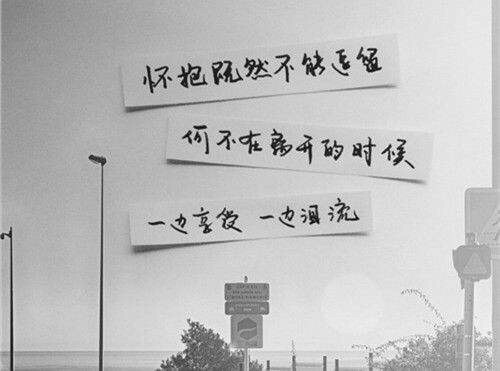 怀抱既然不能逗留
何不在离开的时候
一边享受 一边泪流